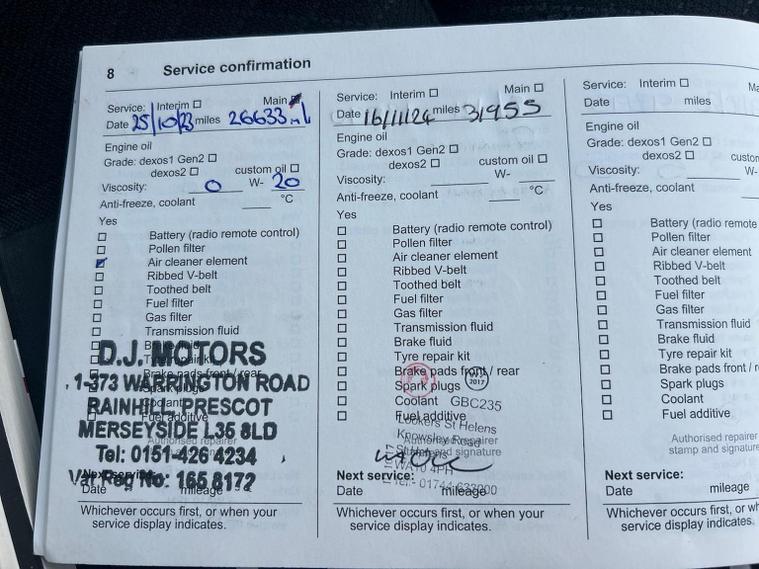 8 Service confirmation
Service: Interim ☐ Main
Date 25/10/23 miles 26633
Engine oil
Grade: dexos1 Gen2 ☐
dexos2 ☐ custom oil ☐
Viscosity: 0 W- 20
Anti-freeze, coolant °C
Yes
☐ Battery (radio remote control)
☐ Pollen filter
☑ Air cleaner element
☐ Ribbed V-belt
☐ Toothed belt
☐ Fuel filter
☐ Gas filter
☐ Transmission fluid
D.J. MOTORS
1-373 WARRINGTON ROAD
RAINHILL PRESCOT
MERSEYSIDE L35 8LD
Authorised repairer
Tel: 0151-426 4234
Vat Reg No: 165 8172
Next service:
Date mileage
Whichever occurs first, or when your
service display indicates.
Service: Interim ☐ Main ☐
Date 16/11/24 miles 31955
Engine oil
Grade: dexos1 Gen2 ☐
dexos2 ☐ custom oil ☐
Viscosity: W-
Anti-freeze, coolant °C
Yes
☐ Battery (radio remote control)
☐ Pollen filter
☐ Air cleaner element
☐ Ribbed V-belt
☐ Toothed belt
☐ Fuel filter
☐ Gas filter
☐ Transmission fluid
☐ Brake fluid
☐ Tyre repair kit
☐ Brake pads front / rear
☐ Spark plugs 2017
☐ Coolant GBC235
☐ Fuel additive
Lookers St Helens
Knowsley Road
WA10 4PH
Tel:- 01744
Next service:
Date mileage
Whichever occurs first, or when your
service display indicates.
Service: Interim ☐
Date miles
Engine oil
Grade: dexos1 Gen2 ☐
dexos2 ☐
Viscosity: W-
Anti-freeze, coolant
Yes
☐ Battery (radio remote
☐ Pollen filter
☐ Air cleaner element
☐ Ribbed V-belt
☐ Toothed belt
☐ Fuel filter
☐ Gas filter
☐ Transmission fluid
☐ Brake fluid
☐ Tyre repair kit
☐ Brake pads front /
☐ Spark plugs
☐ Coolant
☐ Fuel additive
Authorised repairer
stamp and signature
Next service:
Date mileage
Whichever occurs first, or
service display indicates.